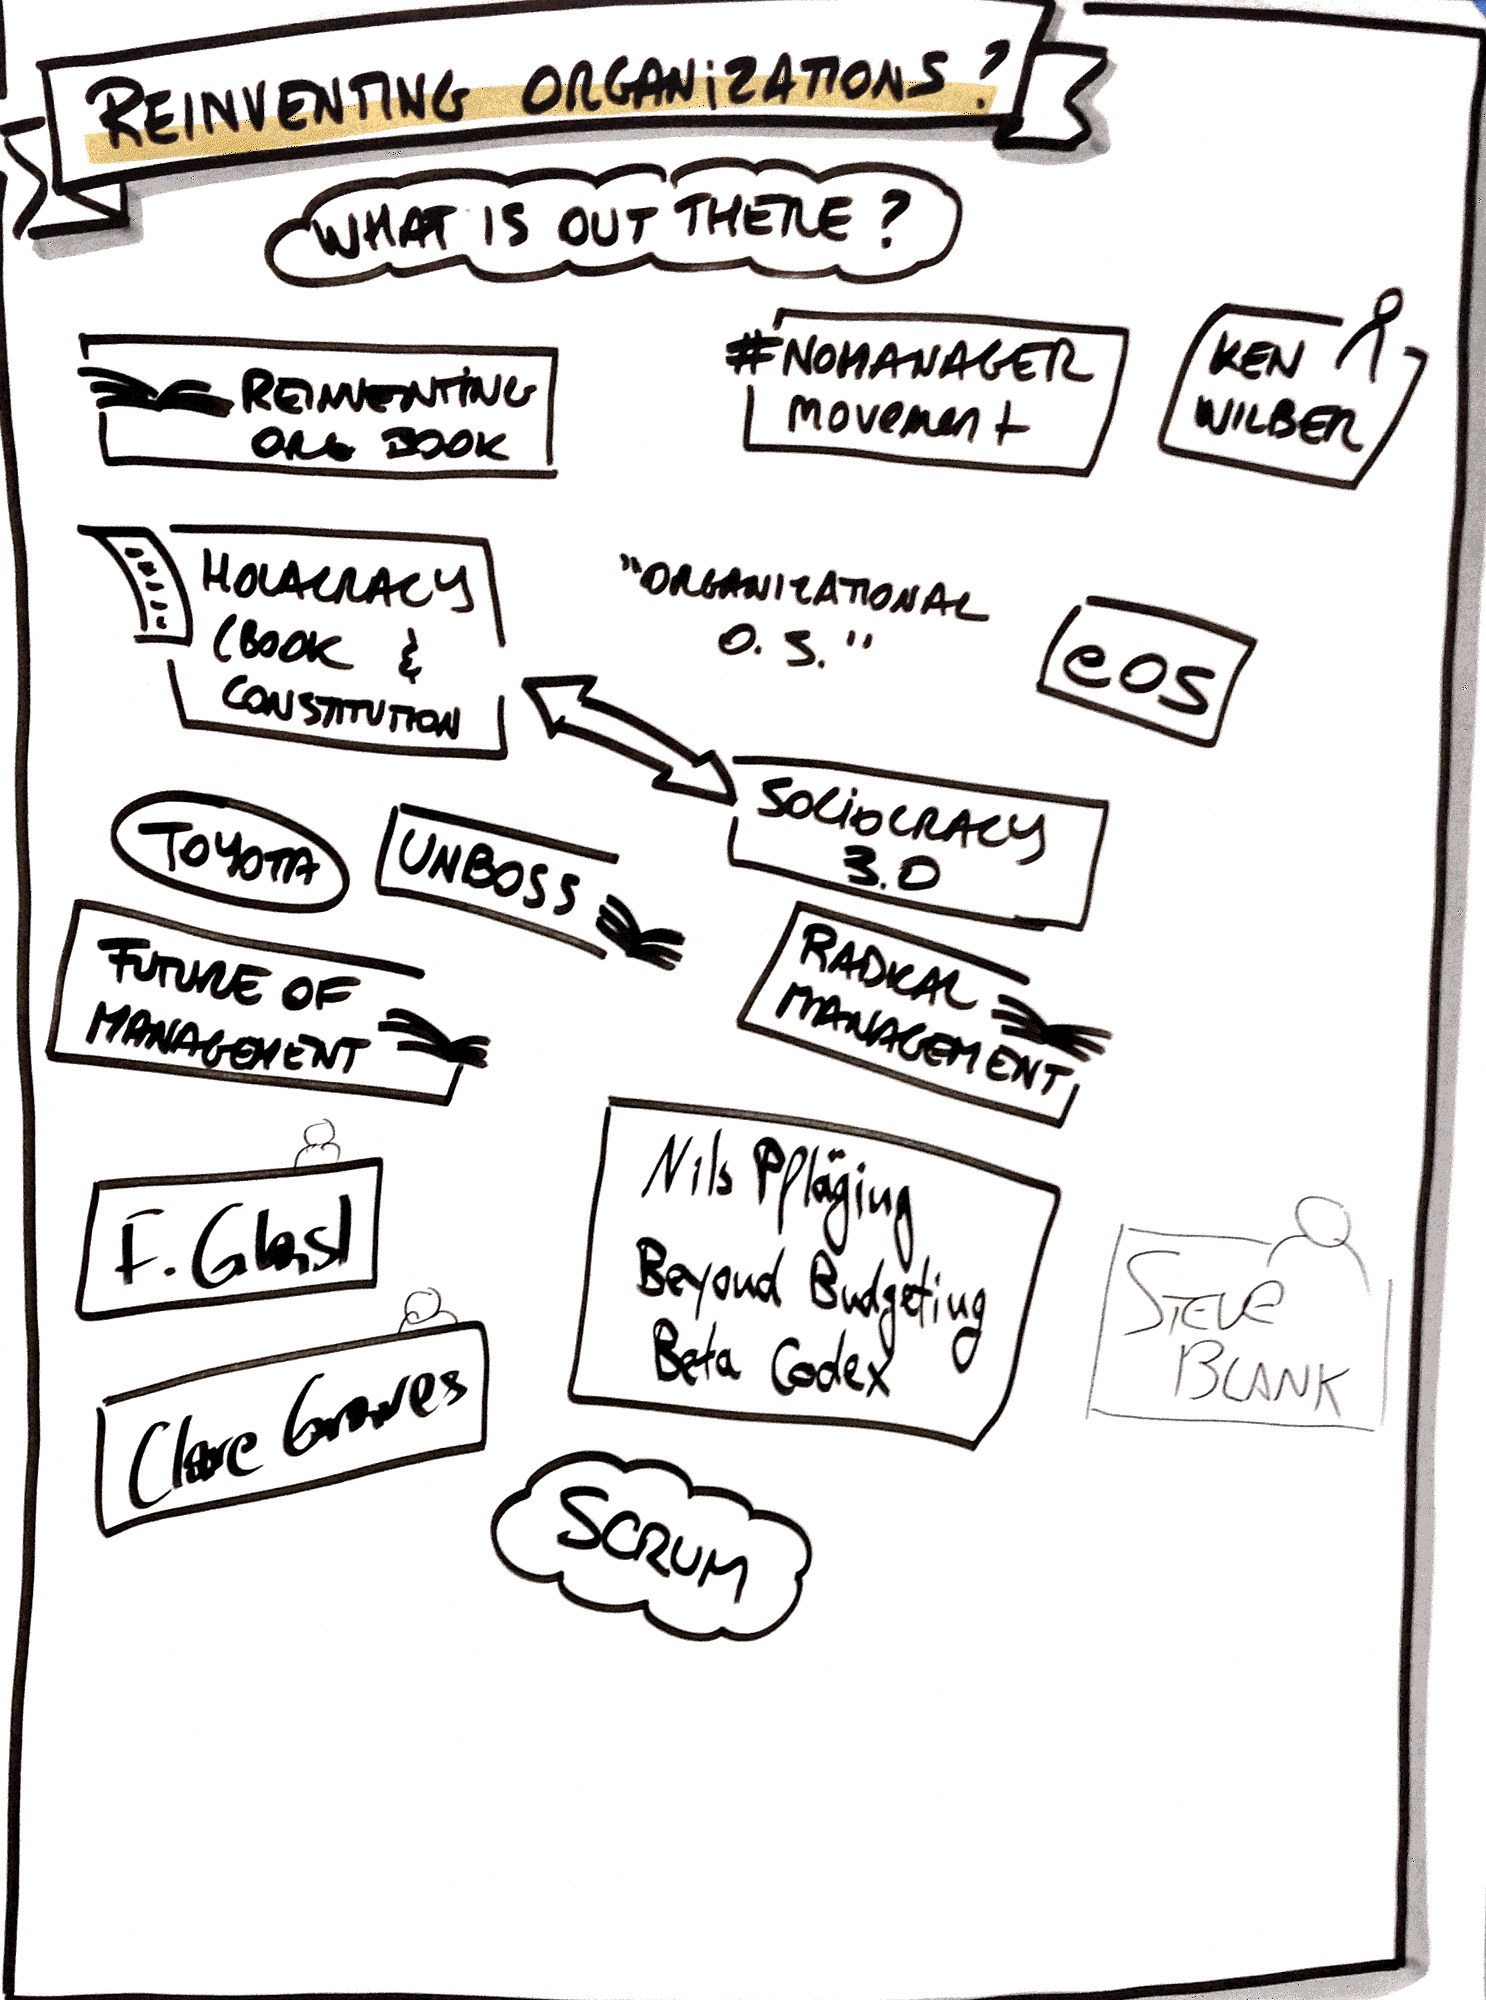 REINVENTING ORGANIZATIONS?
WHAT IS OUT THERE?
REINVENTING
ORG BOOK
#NOMANAGER
movement
KEN
WILBER
HOLACRACY
(BOOK &
CONSTITUTION
"ORGANIZATIONAL
O.S."
eOS
SOCIOCRACY
3.0
TOYOTA
UNBOSS
FUTURE OF
MANAGEMENT
RADICAL
MANAGEMENT
F. Glasl
Nils Pfläging
Beyond Budgeting
Beta Codex
STEVE
BLANK
Clare Graves
SCRUM